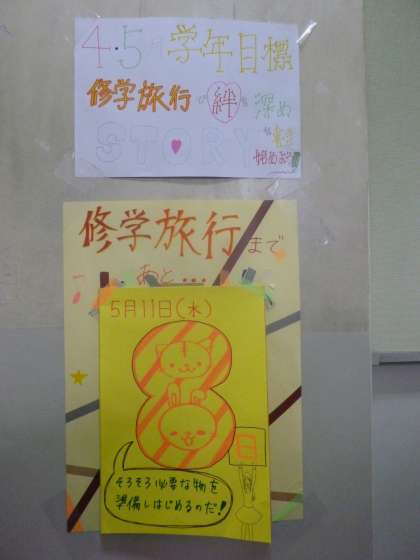 4・5月学年目標
修学旅行で絆を深め
STORYを
始めよう
修学旅行まで
あと・・・
5月11日(水)
8
日
そろそろ必要な物を
準備しはじめるのだ!